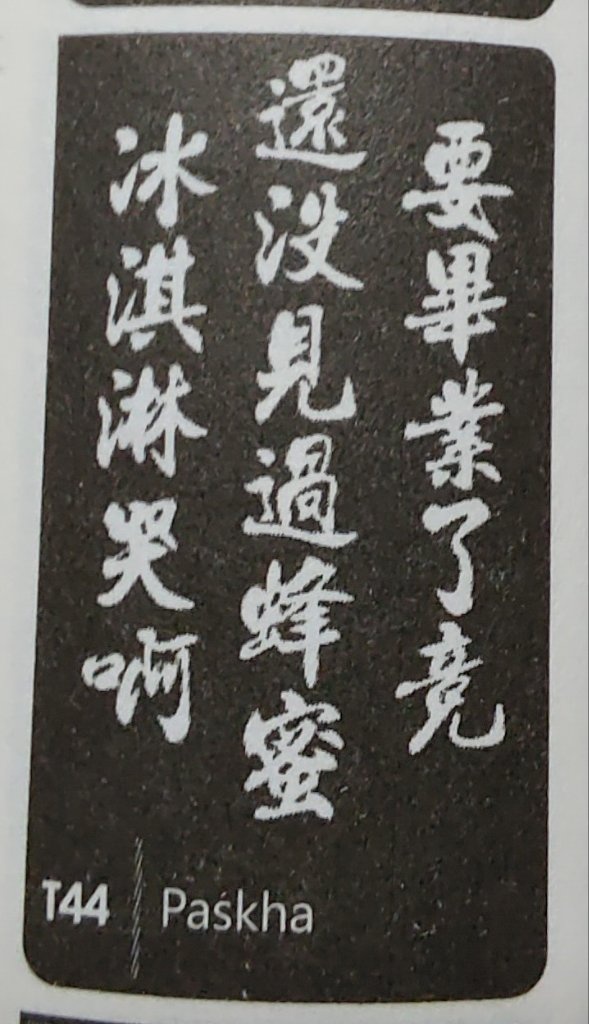 要畢業了竟
還没見過蜂蜜
冰淇淋哭啊
T44 Paśkha